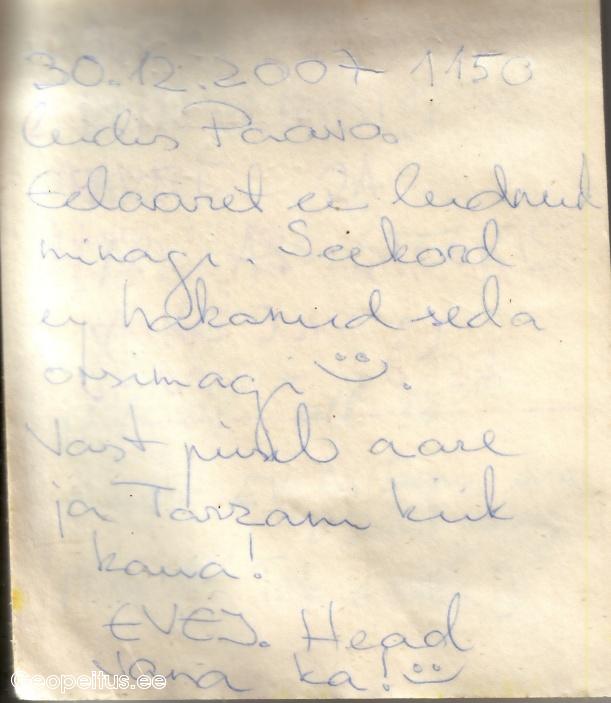 30.12.2007 1150
Leidis Paavo.
Eelaaret ei leidnud
minagi. Seekord
ei hakanud seda
otsimagi
Vast püsib aare
ja Tarzani kiik
kaua!
EVEJ. Head
vana ka!
Geopeitus.ee